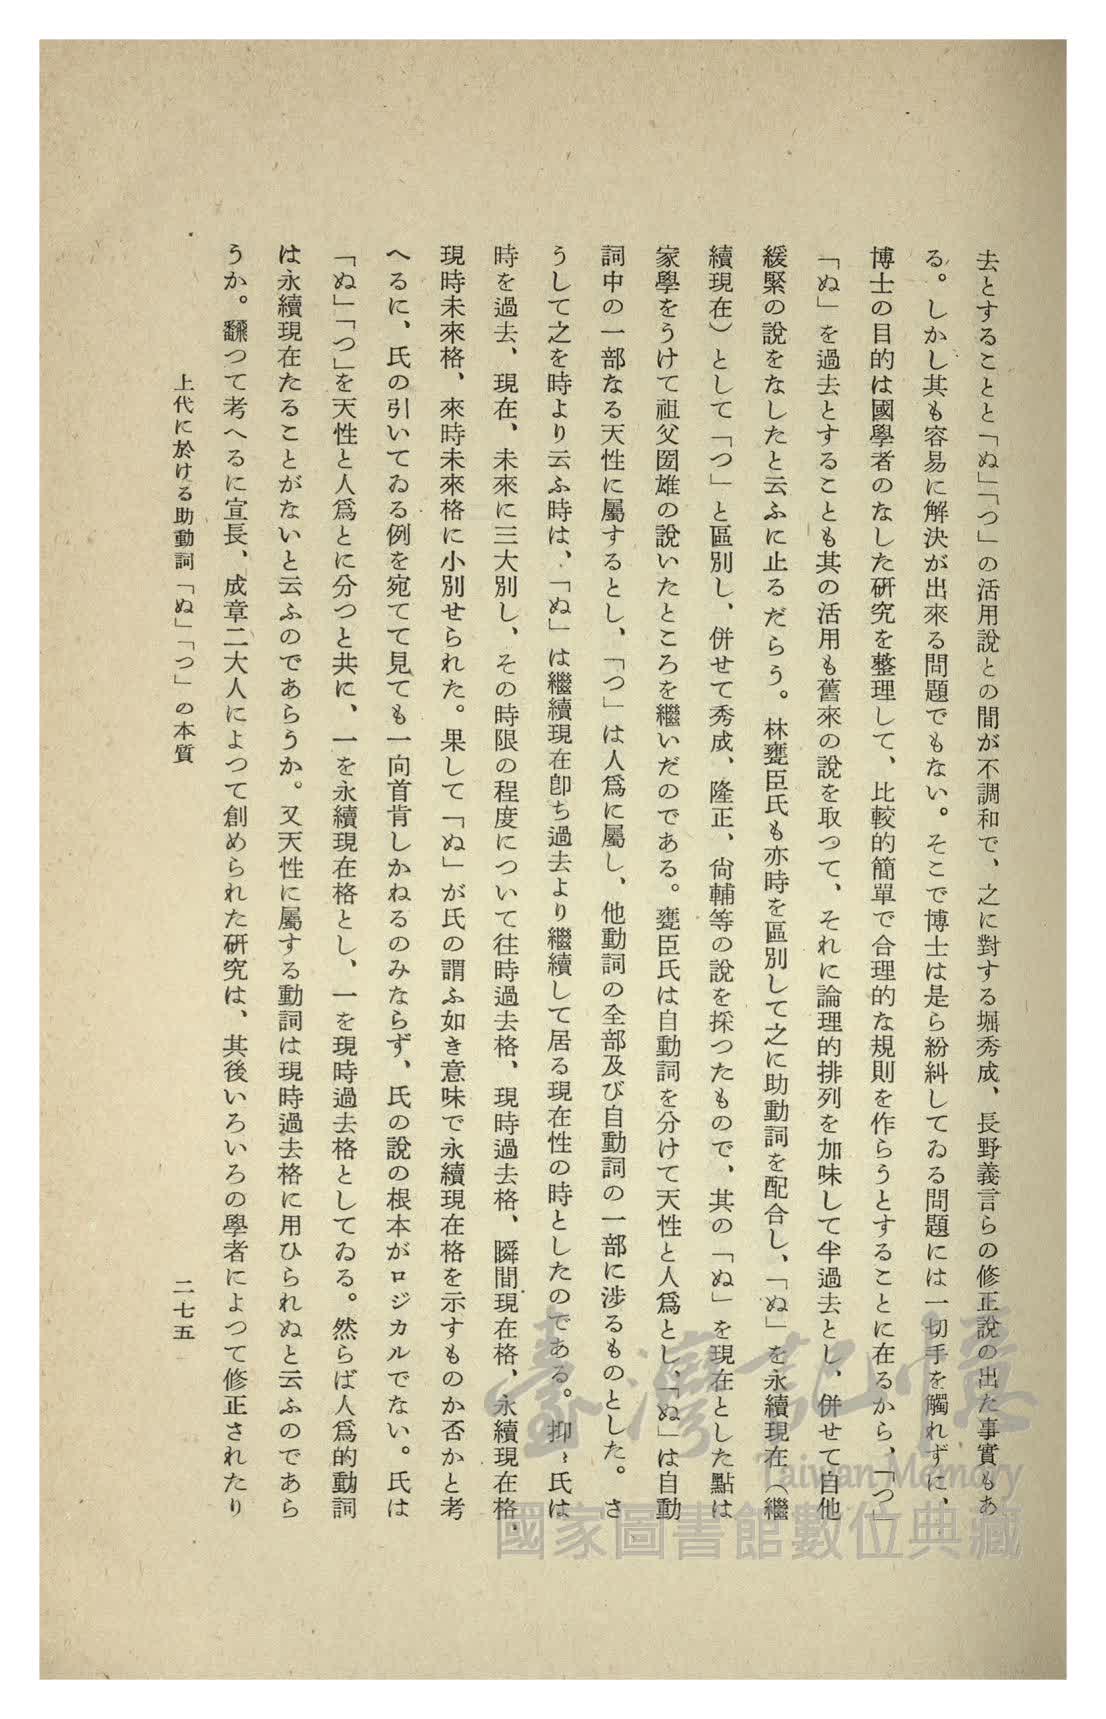 去とすることと「ぬ」「つ」の活用說との間が不調和で、之に對する堀秀成、長野義言らの修正說の出た事實もあ
る。しかし其も容易に解決が出來る問題でもない。そこで博士は是ら紛糾してゐる問題には一切手を觸れずに、
博士の目的は國學者のなした硏究を整理して、比較的簡單で合理的な規則を作らうとすることに在るから、「つ」
「ぬ」を過去とすることも其の活用も舊來の說を取つて、それに論理的排列を加味して半過去とし、併せて自他
緩緊の說をなしたと云ふに止るだらう。林甕臣氏も亦時を區別して之に助動詞を配合し、「ぬ」を永續現在（繼
續現在）として「つ」と區別し、併せて秀成、隆正、尙輔等の說を採つたもので、其の「ぬ」を現在とした點は
家學をうけて祖父圀雄の說いたところを繼いだのである。甕臣氏は自動詞を分けて天性と人爲とし、「ぬ」は自動
詞中の一部なる天性に屬するとし、「つ」は人爲に屬し、他動詞の全部及び自動詞の一部に涉るものとした。さ
うして之を時より云ふ時は、「ぬ」は繼續現在卽ち過去より繼續して居る現在性の時としたのである。抑〻氏は
時を過去、現在、未來に三大別し、その時限の程度について往時過去格、現時過去格、瞬間現在格、永續現在格、
現時未來格、來時未來格に小別せられた。果して「ぬ」が氏の謂ふ如き意味で永續現在格を示すものか否かと考
へるに、氏の引いてゐる例を宛てて見ても一向首肯しかねるのみならず、氏の說の根本がロジカルでない。氏は
「ぬ」「つ」を天性と人爲とに分つと共に、一を永續現在格とし、一を現時過去格としてゐる。然らば人爲的動詞
は永續現在たることがないと云ふのであらうか。又天性に屬する動詞は現時過去格に用ひられぬと云ふのであら
うか。飜つて考へるに宣長、成章二大人によつて創められた硏究は、其後いろいろの學者によつて修正されたり
上代に於ける助動詞「ぬ」「つ」の本質
二七五
臺灣記憶
Taiwan Memory
國家圖書館數位典藏